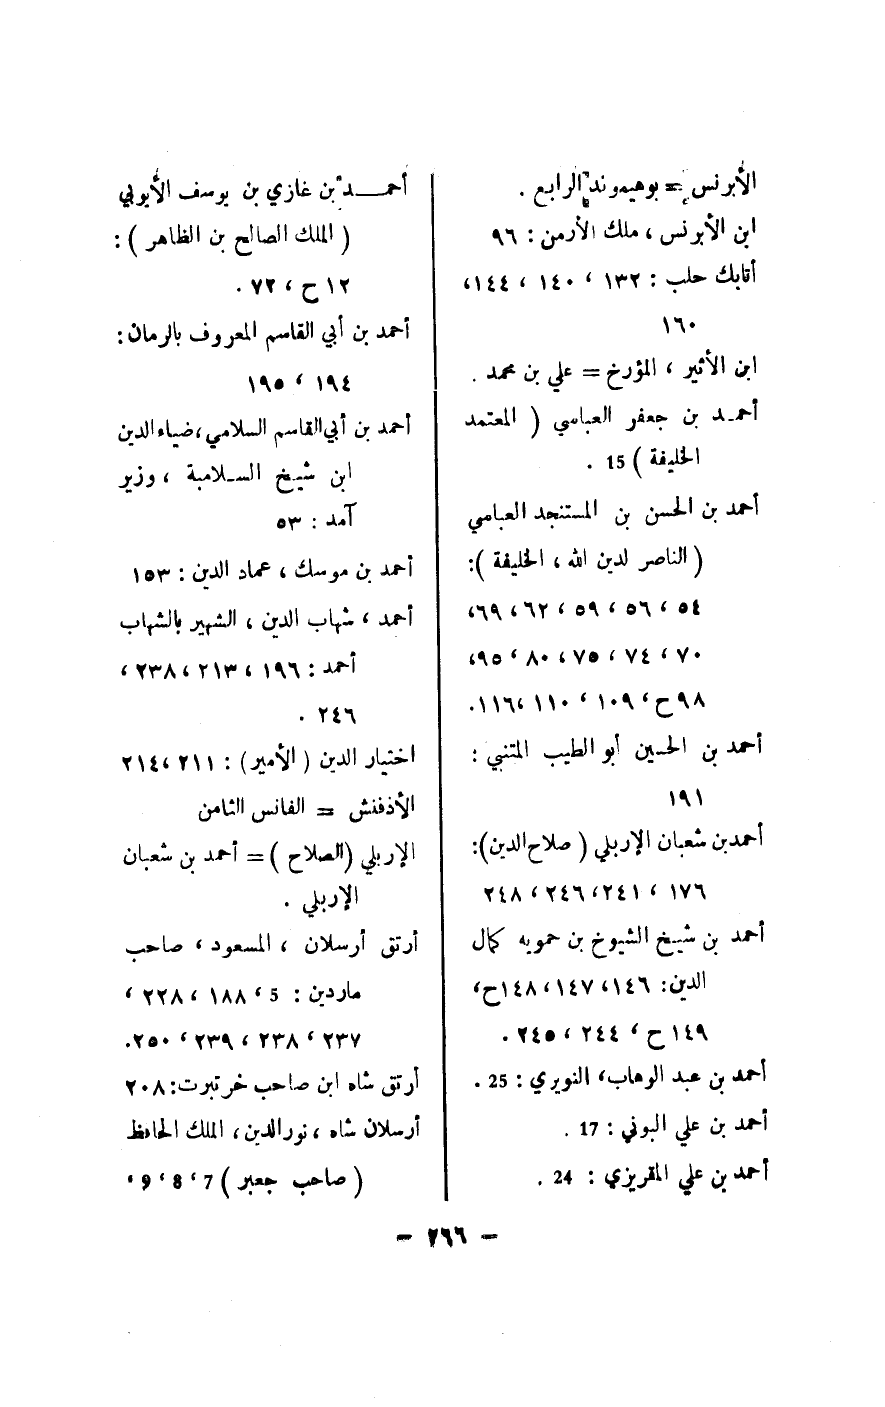 الأبرنس = بوهيموند الرابع .
ابن الأبرنس ، ملك الأرمن : ٩٦
أتابك حلب : ١٣٢ ، ١٤٠ ، ١٤٤،
١٦٠
ابن الأثير ، المؤرخ = علي بن محمد .
أحمد بن جعفر العباسي ( المعتمد
الخليفة ) 15 .
أحمد بن الحسن بن المستنجد العباسي
( الناصر لدين الله ، الخليفة ):
٥٤ ، ٥٦ ، ٥٩ ، ٦٢ ، ٦٩،
٧٠ ، ٧٤ ، ٧٥ ، ٨٠ ، ٩٥،
٩٨ ح ، ١٠٩ ، ١١٠ ، ١١٦.
أحمد بن الحسين أبو الطيب المتنبي :
١٩١
أحمد بن شعبان الإربلي ( صلاح الدين ):
١٧٦ ، ٢٤١ ، ٢٤٦ ، ٢٤٨
أحمد بن شيخ الشيوخ بن حمويه كمال
الدين: ١٤٦ ، ١٤٧ ، ١٤٨ح،
١٤٩ ح ، ٢٤٤ ، ٢٤٥ .
أحمد بن عبد الوهاب، النويري : 25 .
أحمد بن علي البوني : 17 .
أحمد بن علي المقريزي : 24 .
أحمـــد بن غازي بن يوسف الأيوبي
( الملك الصالح بن الظاهر ) :
١٢ ح ، ٧٢ .
أحمد بن أبي القاسم المعروف بالرمان:
١٩٤ ، ١٩٥
أحمد بن أبي القاسم السلامي، ضياء الدين
ابن شيخ السـلامية ، وزير
آمد : ٥٣
أحمد بن موسك ، عماد الدين : ١٥٣
أحمد ، شهاب الدين ، الشهير بالشهاب
أحمد : ١٩٦ ، ٢١٣ ، ٢٣٨ ،
٢٤٦ .
اختيار الدين ( الأمير ) : ٢١١ ، ٢١٤
الأذفنش = الفانس الثامن
الإربلي (الصلاح ) = أحمد بن شعبان
الإربلي .
أرتق أرسلان ، المسعود ، صاحب
ماردين : 5 ، ١٨٨ ، ٢٢٨ ،
٢٣٧ ، ٢٣٨ ، ٢٣٩ ، ٢٥٠.
أرتق شاه ابن صاحب خرتبرت: ٢٠٨
أرسلان شاه ، نور الدين ، الملك الحافظ
( صاحب جعبر ) 7 ، 8 ، 9 ،
– ٢٦٦ –